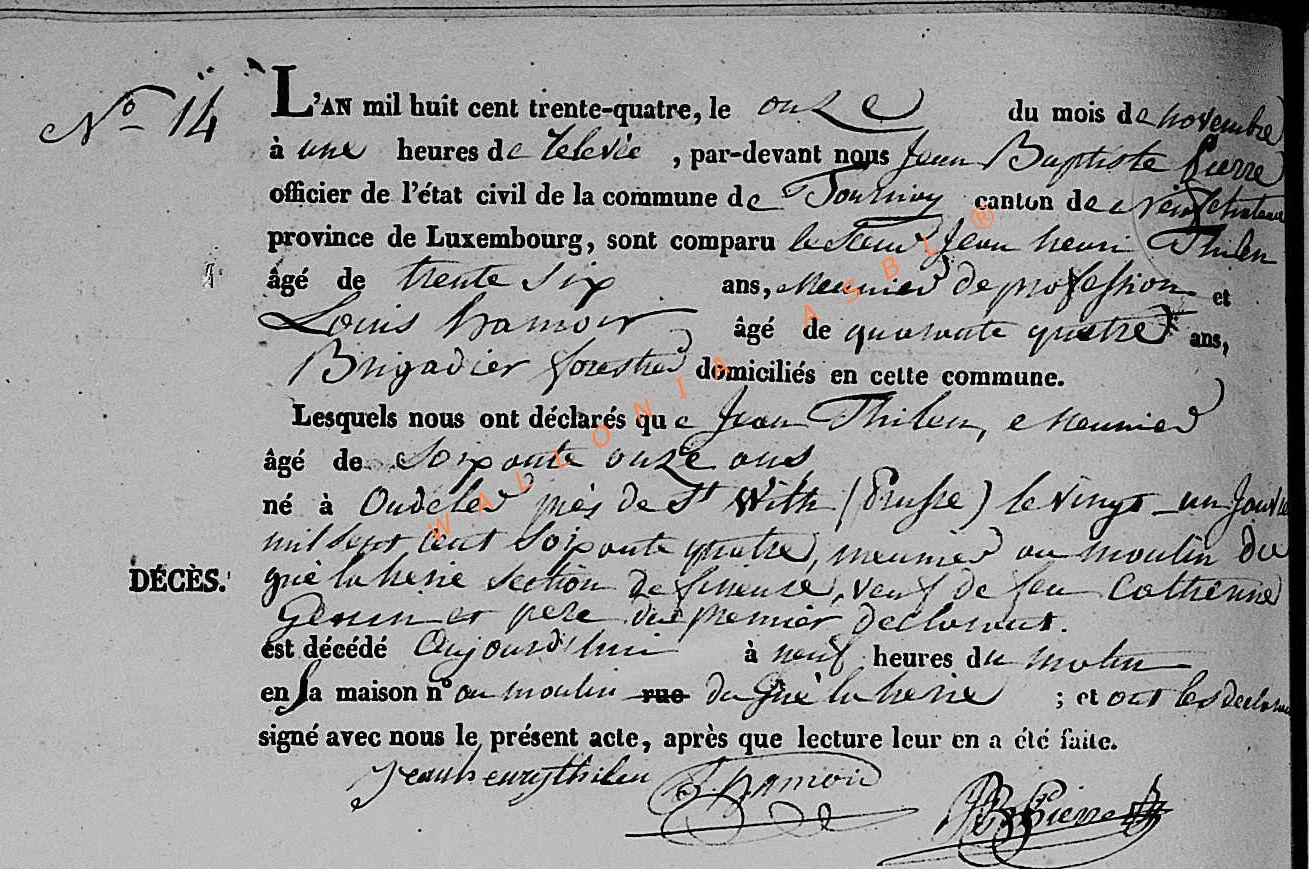 No 14
L'AN mil huit cent trente-quatre, le onze du mois de novembre
à une heures de relevée, par-devant nous Jean Baptiste Pierre
officier de l'état civil de la commune de Tournay canton de neufchateau
province de Luxembourg, sont comparu le Sieur Jean henri Thilen
âgé de trente six ans, meunier de profession et
Louis hamoir âgé de quarante quatre ans,
Brigadier forestier domiciliés en cette commune.
Lesquels nous ont déclarés que Jean Thilen, meunier
âgé de soixante onze ans
né à Oudeler près de St With (Prusse) le vingt-un Janvier
mil sept cent soixante quatre, meunier au moulin du
DÉCÈS.
gué la herie section de, veuf de feu Catherine
et père du premier déclarant.
est décédé aujourd'hui à neuf heures du matin
en sa maison n° au moulin rue du Gué la herie ; et ont les declarans
signé avec nous le présent acte, après que lecture leur en a été faite.
Jean henry thilen L. hamoir JB Pierre
WALLONIA ASBL ®